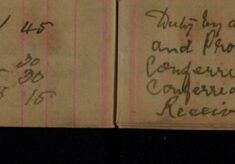 45
30
30
15
Duty by a
and Pro
Conferri
Conferri
Receiv